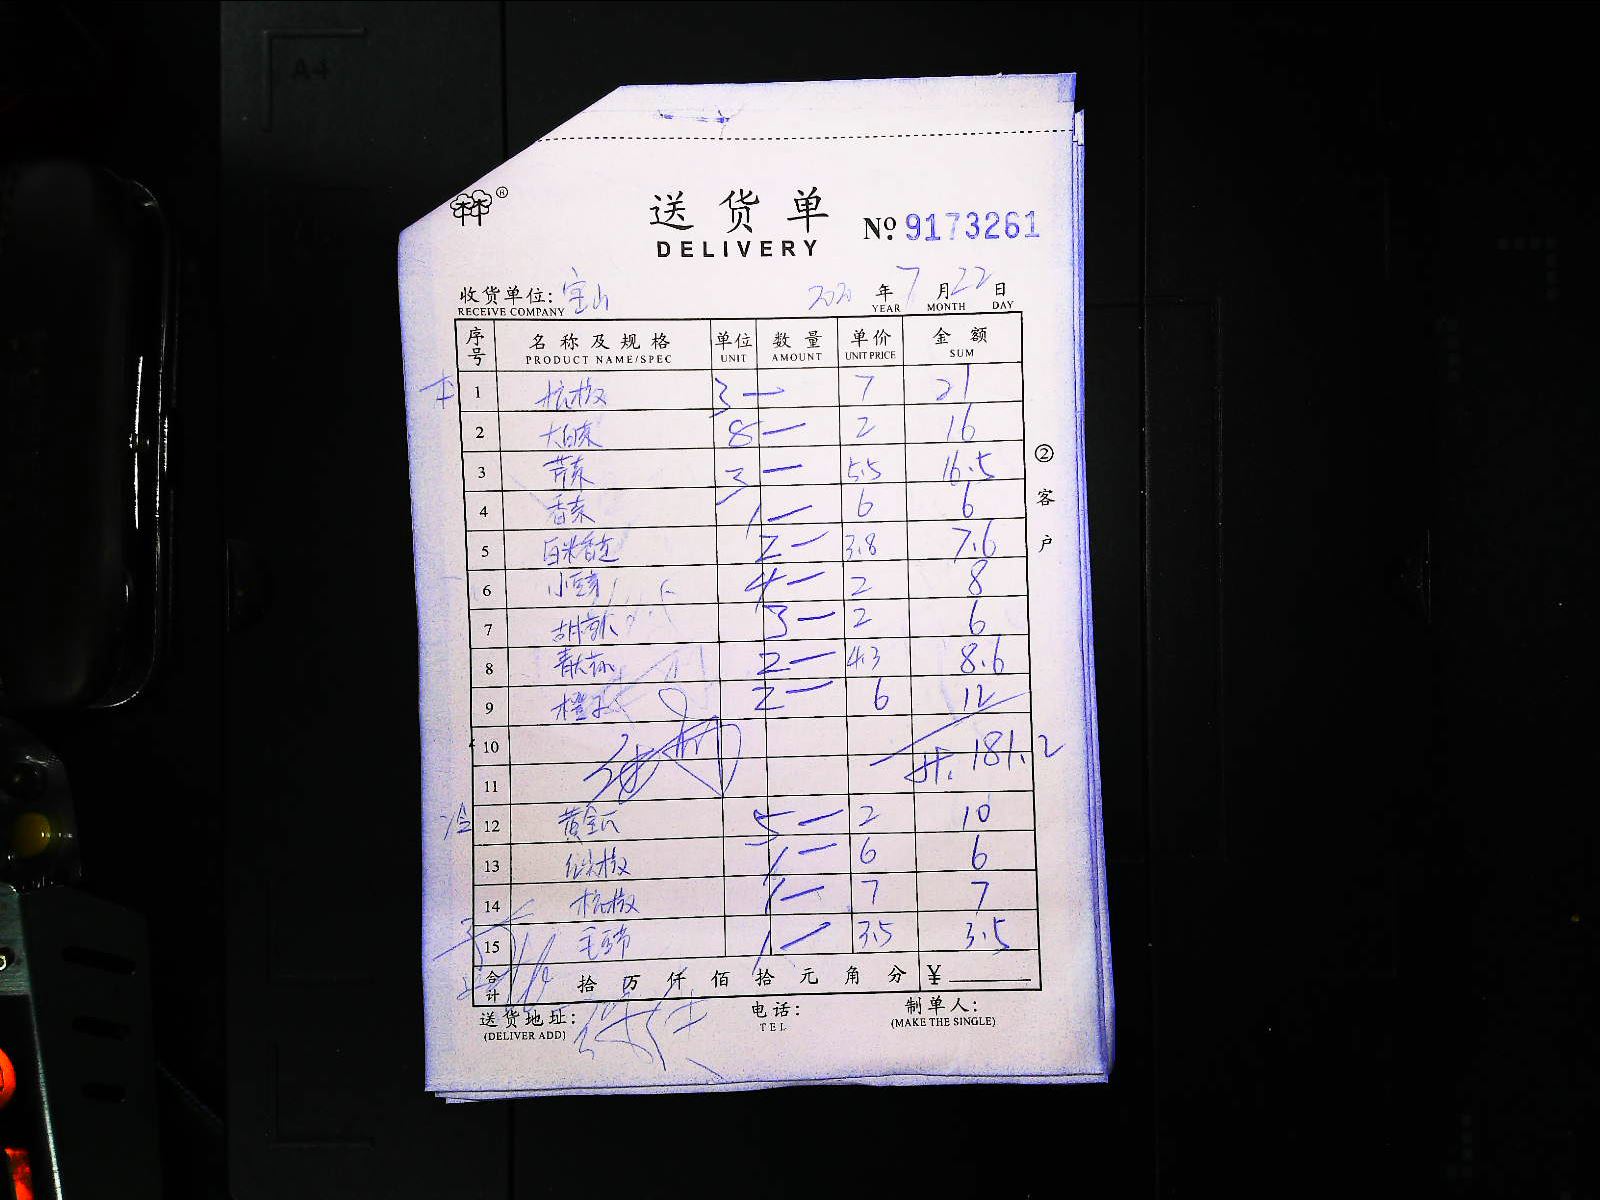 A4
®
送货单
DELIVERY
№ 9173261
收货单位: 宝山 2020 年 7 月 22 日
RECEIVE COMPANY YEAR MONTH DAY
序号 名称及规格 单位 数量 单价 金额
PRODUCT NAME/SPEC UNIT AMOUNT UNIT PRICE SUM
1 杭椒 3 — 7 21
2 大白菜 8 — 2 16
3 芹菜 3 — 5.5 16.5
4 香菜 1 — 6 6
5 白米香 2 — 3.8 7.6
6 小豆芽 4 — 2 8
7 3 — 2 6
8 2 — 4.3 8.6
9 橙子 2 — 6 12
10
181.2
11
冷 12 黄金瓜 5 — 2 10
13 红尖椒 1 — 6 6
14 杭椒 1 — 7 7
15 毛豆节 1 — 3.5 3.5
合计 拾 万 仟 佰 拾 元 角 分 ¥
送货地址: 电话: 制单人:
(DELIVER ADD) TEL (MAKE THE SINGLE)
②客户